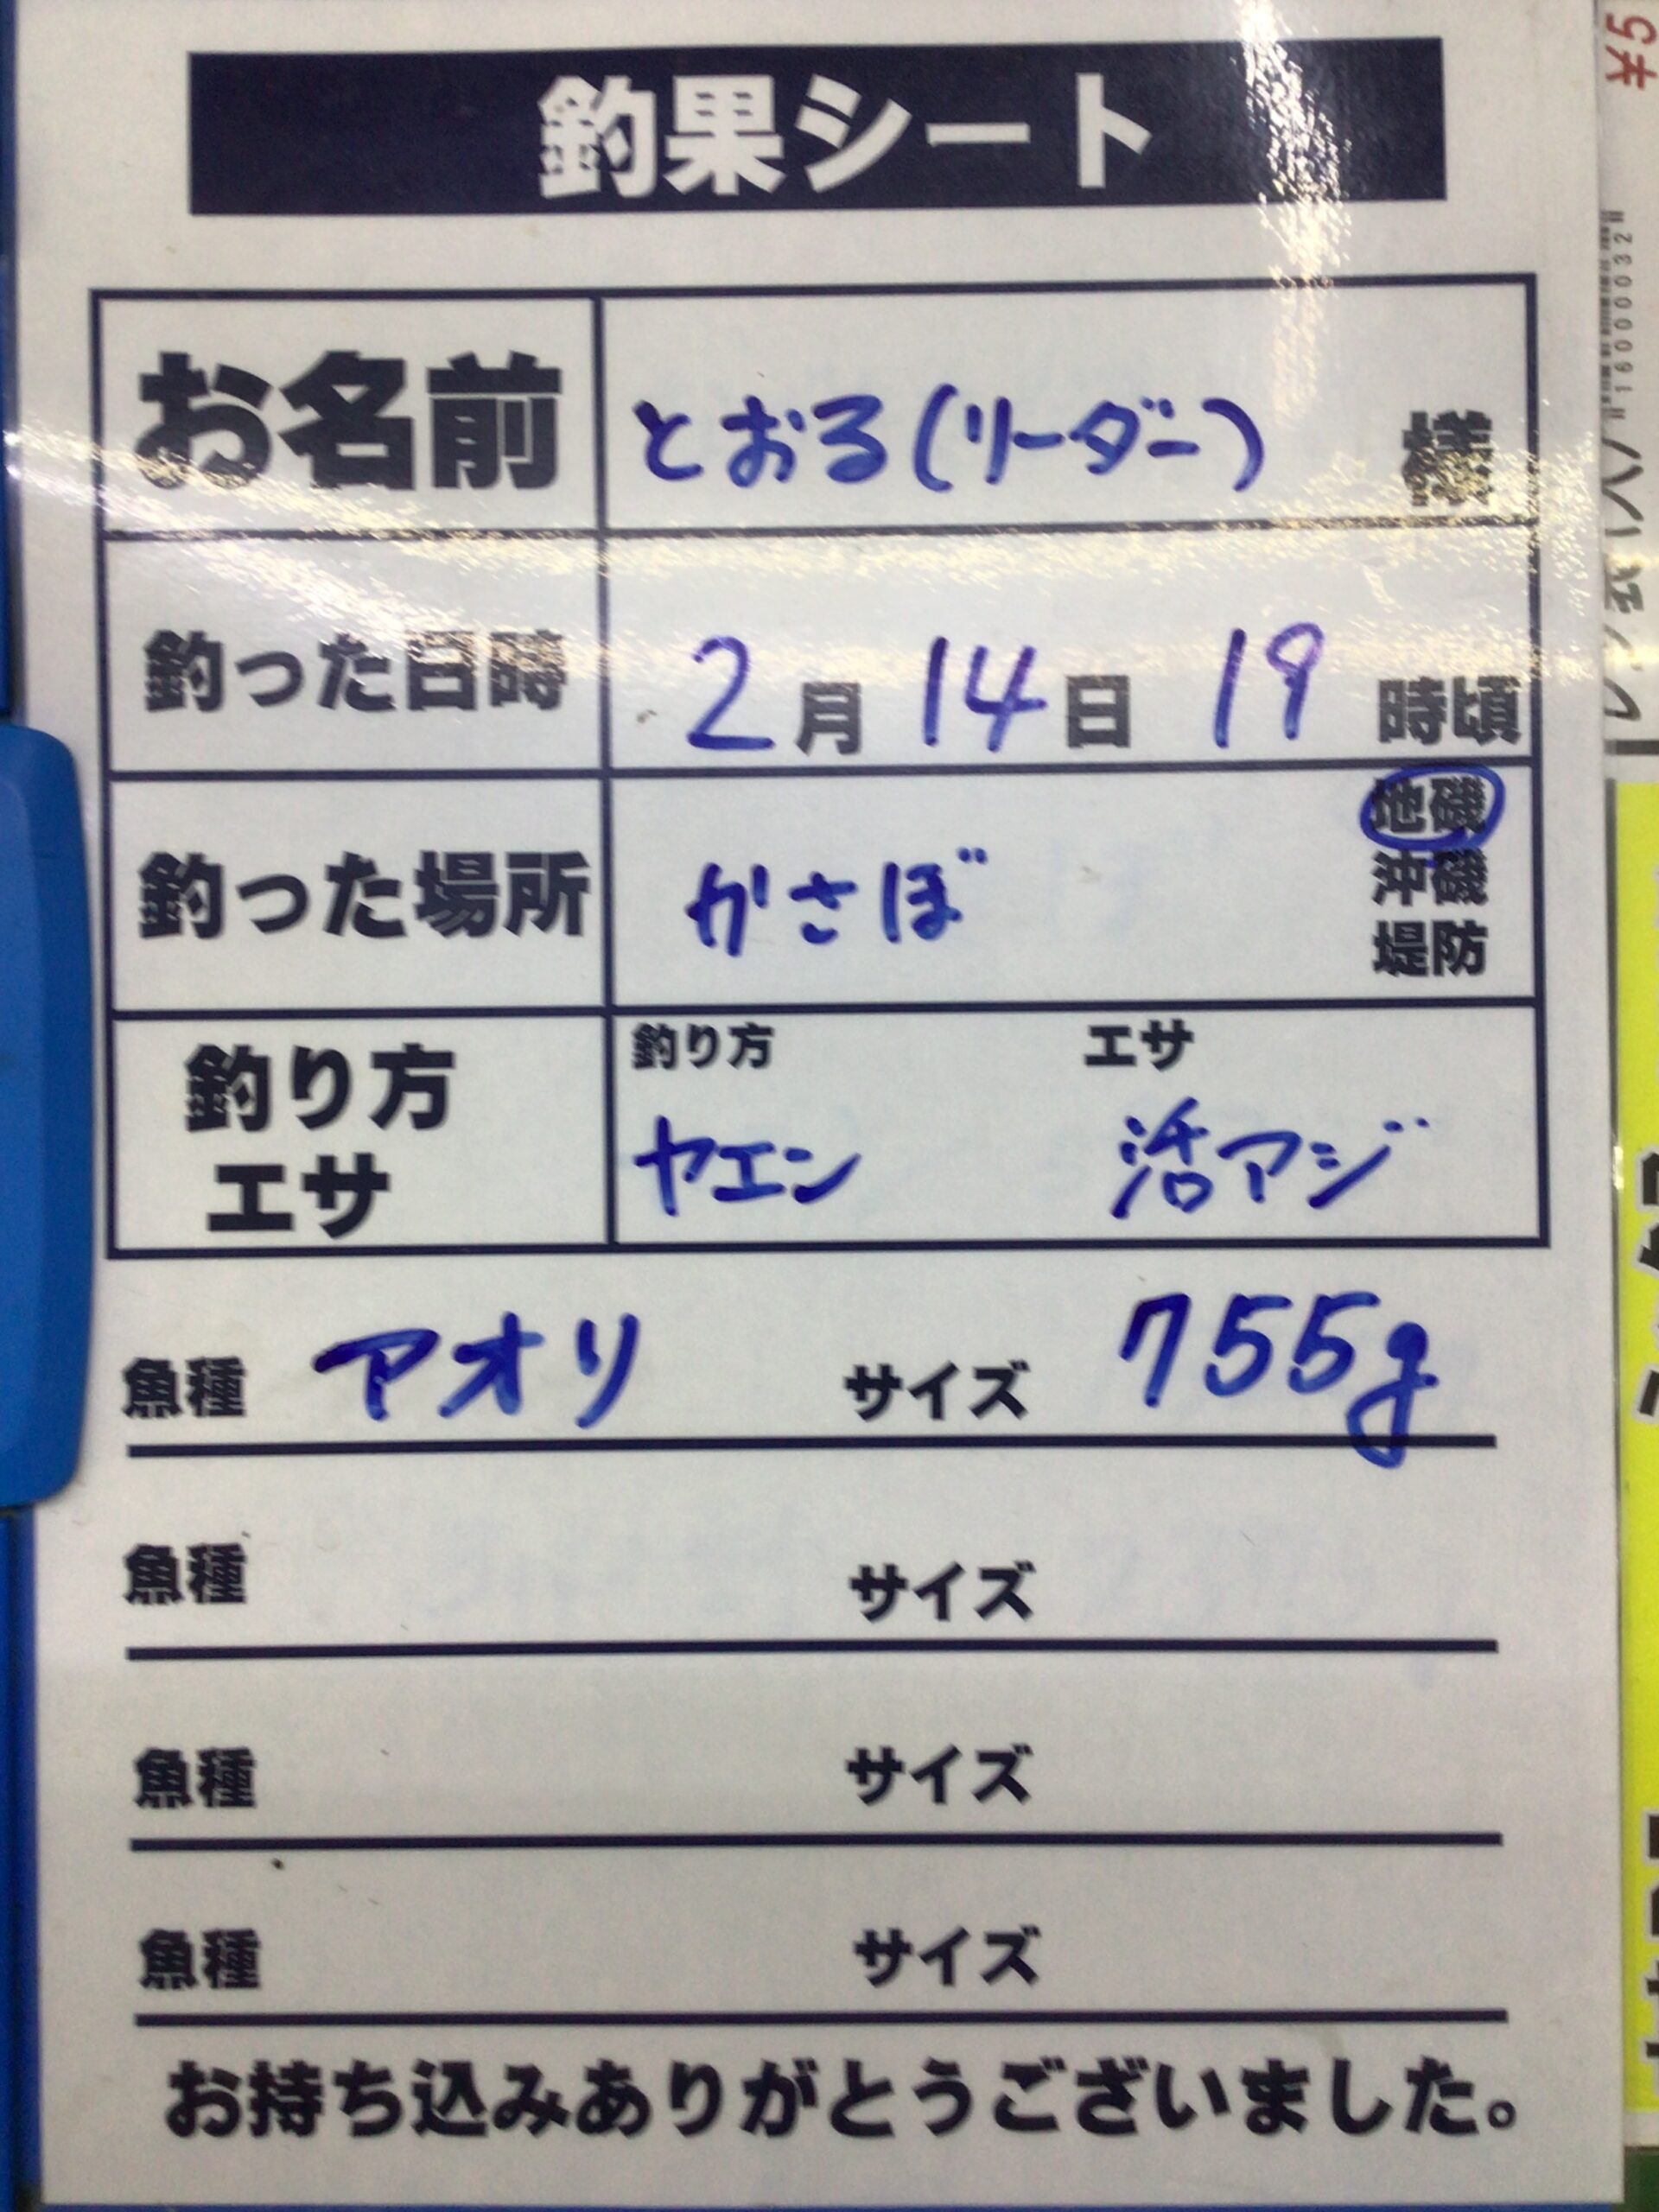 釣果シート
お名前 とおる(リーダー) 様
釣った日時 2月 14日 19時頃
釣った場所 かさぼ 地磯
沖磯
堤防
釣り方 エサ
釣り方
エサ
ヤエン 活アジ
魚種 アオリ サイズ 755g
魚種 サイズ
魚種 サイズ
魚種 サイズ
お持ち込みありがとうございました。
¥5